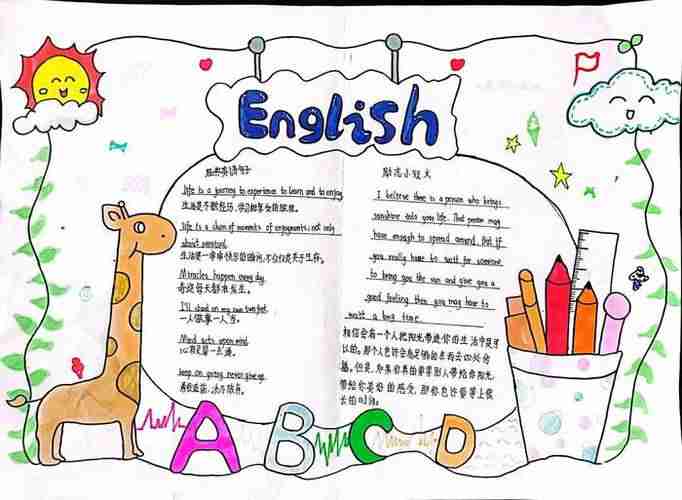 English
经典英语句子
life is a journey to experience to learn and to enjoy
生活是不断经历、学习和享受的旅程。
life is a chain of moments of enjoyments; not only
about survival.
生活是一串串快乐的瞬间,不仅仅是关于生存。
Miracles happen every day.
奇迹每天都在发生。
I'll stand on my own two feet.
一人做事一人当。
Mind acts upon mind.
心有灵犀一点通。
keep on going never give up.
勇往直前,决不放弃。
励志小短文
I believe there is a person who brings
sunshine into your life. That person may
have enough to spread around. But if
you really have to wait for someone
to bring you the sun and give you a
good feeling then you may have to
wait a long time.
相信会有一个人把阳光带进你的生活中是可
以的。那个人也许会有足够的东西去四处分
播。但是,如果你真的要等别人带给你阳光,
带给你美好的感受,那你也许要等上很
长的时间。
A B C D